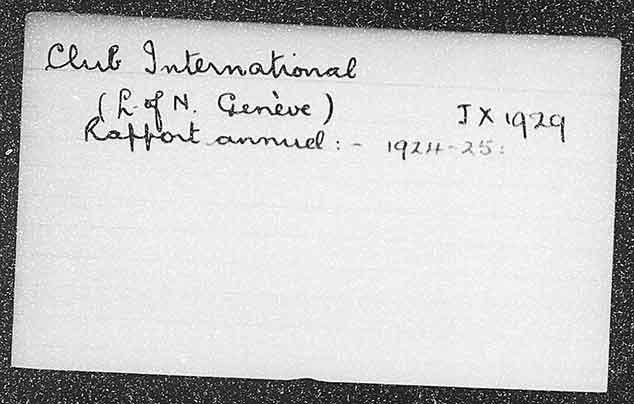 Club International
(L. of N. Genève)
JX 1929
Rapport annuel : - 1924-25 :